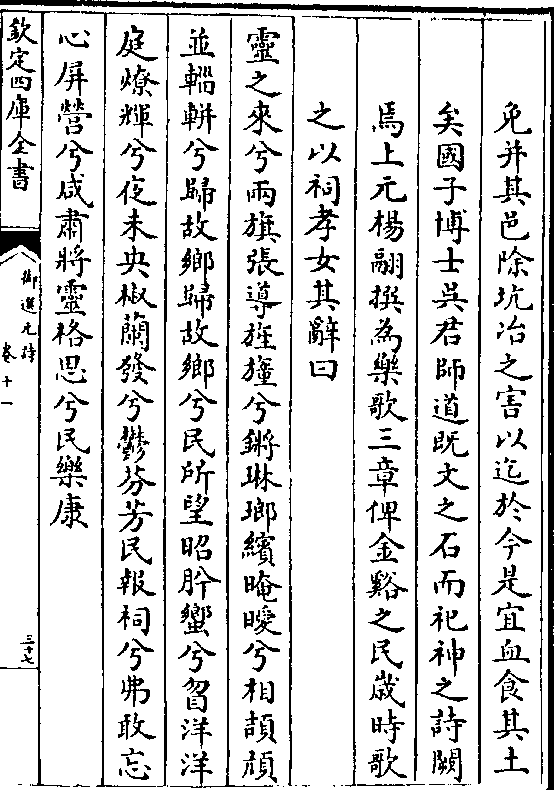 免并其邑除坑冶之害以迄於今是宜血食其土
矣國子博士吳君師道既文之石而祀神之詩闕
焉上元楊翮撰為樂歌三章俾金谿之民歲時歌
之以祠孝女其辭曰
靈之來兮兩旗張導旌旞兮鏘琳瑯繽晻曖兮相頡頏
並輜軿兮歸故鄉歸故鄉兮民所望昭肸蠁兮曶洋洋
庭燎輝兮夜未央椒蘭發兮鬱芬芳民報祠兮弗敢忘
心屏營兮咸肅將靈格思兮民樂康
欽定四庫全書
御選元詩
卷十一
三十七